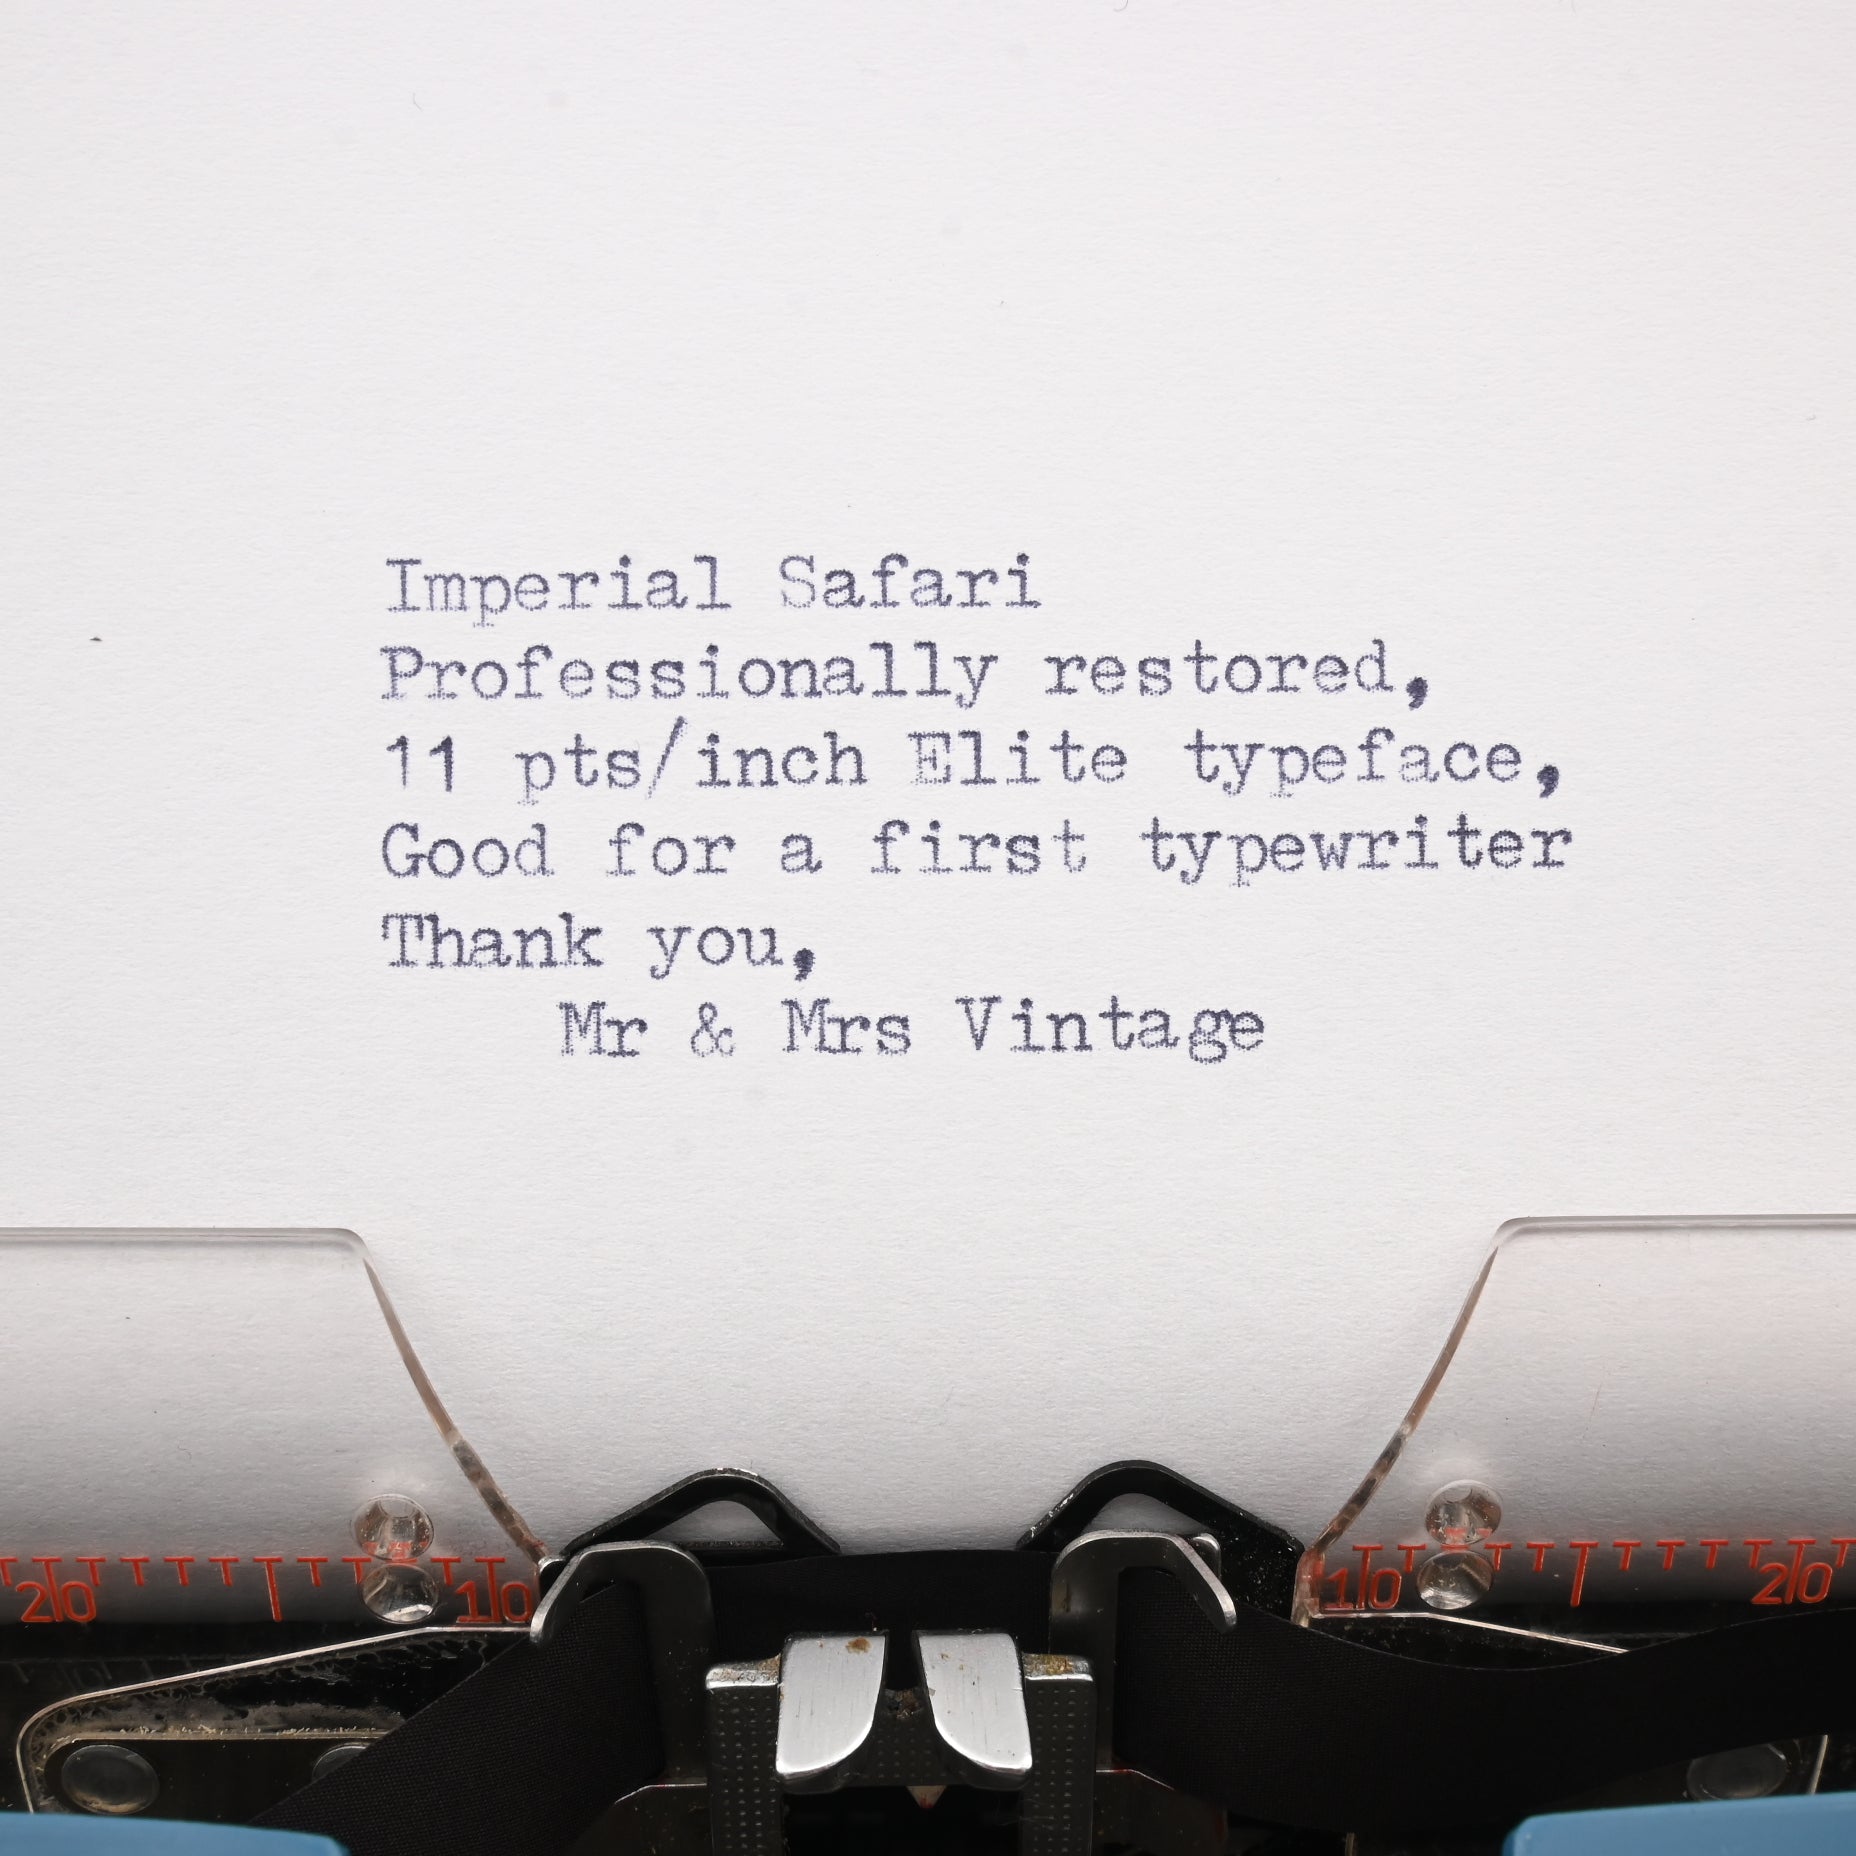 Imperial Safari
Professionally restored,
11 pts/inch Elite typeface,
Good for a first typewriter
Thank you,
Mr & Mrs Vintage
20 10 10 20